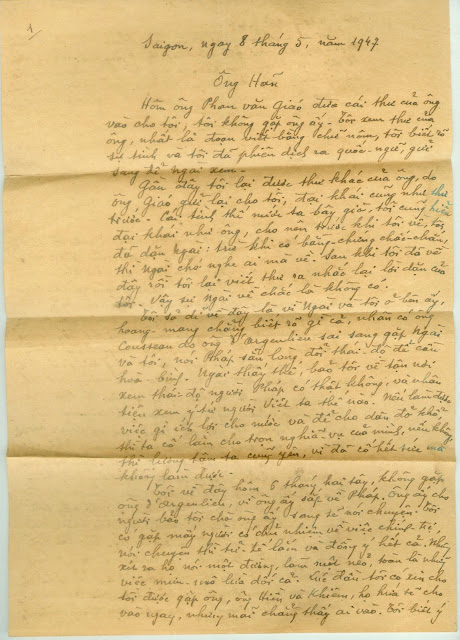 1
Saigon, ngay 8 tháng 5, năm 1947
Ông Hoán
Hôm ông Phan văn Giáo đưa cái thư của ông
vào cho tôi, tôi không gặp ông ấy. Tôi xem thư của
ông, nhất là đoạn viết bằng chữ nôm, tôi biết rõ
sự tình và tôi đã phiên dịch ra quốc-ngữ, gửi
sang để Ngài xem.
Gần đây tôi lại được thư khác của ông, do
ông Giáo gửi lại cho tôi, đại khái cũng như thư
trước. Cái tình thế nước ta bây giờ, tôi cũng hiểu
đại khái như ông, cho nên trước khi tôi về, tôi
đã dặn Ngài: trừ khi có bằng-chứng chắc-chắn,
thì Ngài chớ nghe ai mà về. Sau khi tôi đã về
đây rồi tôi lại viết thư ra nhắc lại lời dặn của
tôi. Vậy sự Ngài về chắc là không có.
Tôi sở dĩ về đây là vì Ngài và tôi ở bên ấy,
hoang-mang chẳng biết rõ gì cả, nhân có ông
Cousseau do ông d'Argenlieu sai sang gặp Ngài
và tôi, nói Pháp sẵn lòng đổi thái-độ để cầu
hoà-bình. Ngài thấy thế, bảo tôi về tận nơi
xem thái-độ người Pháp có thật không, và nhân
tiện xem ý-tứ người Việt ta thế nào. Nếu làm được
việc gì ích lợi cho nước và để cho dân đỡ khổ,
thì ta cố làm cho trọn nghĩa-vụ của mình, nếu không,
thì lương tâm ta cũng yên, vì đã cố hết sức mà
không làm được.
Tôi về đây hôm 6 tháng hai tây, không gặp
ông d'Argenlieu, vì ông ấy sắp về Pháp. Ông ấy cho
người bảo tôi chờ ông ấy sang sẽ nói chuyện. Tôi
có gặp mấy người có chủ nhiệm về việc chính-trị,
nói chuyện thì tử-tế lắm và đồng ý hết cả. Nhưng
xét ra họ nói một đường, làm một nẻo, toàn là những
việc mưu-mô lừa dối cả. Lúc đầu tôi có xin cho
tôi được gặp ông, ông Hiền và Khiêm, họ hứa sẽ cho
vào ngay, nhưng mãi chẳng thấy ai vào. Tôi biết ý